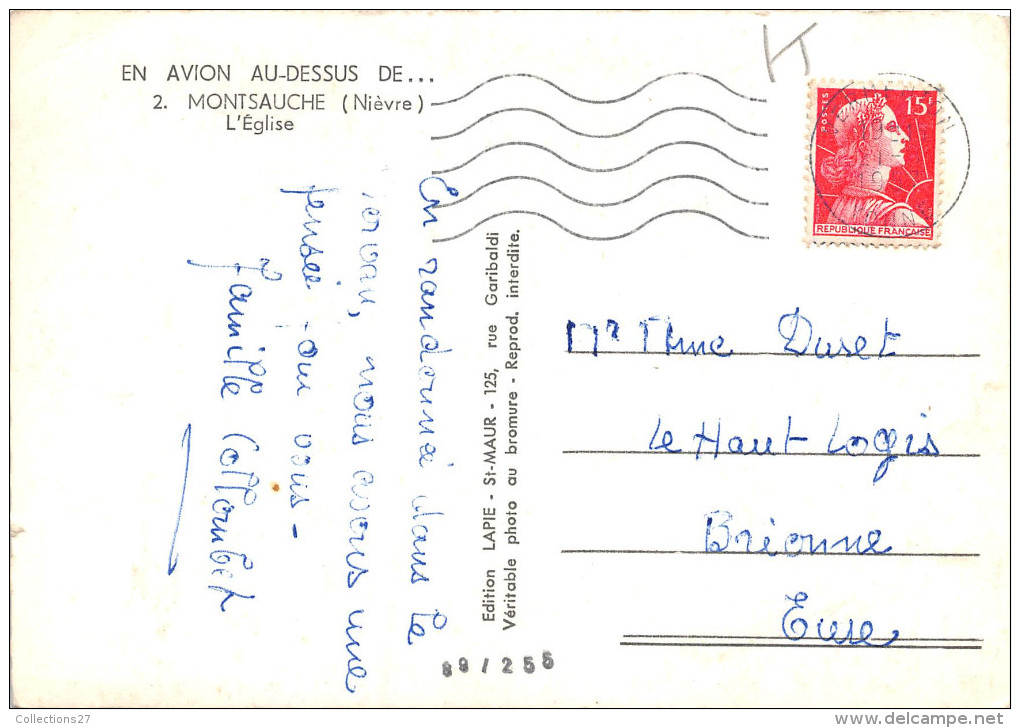 EN AVION AU-DESSUS DE...
2. MONTSAUCHE (Nièvre)
L'Église
POSTES
15F
REPUBLIQUE FRANÇAISE
En randonnée dans le
Morvan, nous avons une
pensée pour vous -
famille Collombet
Edition LAPIE - St-MAUR - 125, rue Garibaldi
Véritable photo au bromure - Reprod. interdite.
Mr Mme Duret
Le Haut Logis
Brionne
Eure
89/255
Collections27
delcampe.net